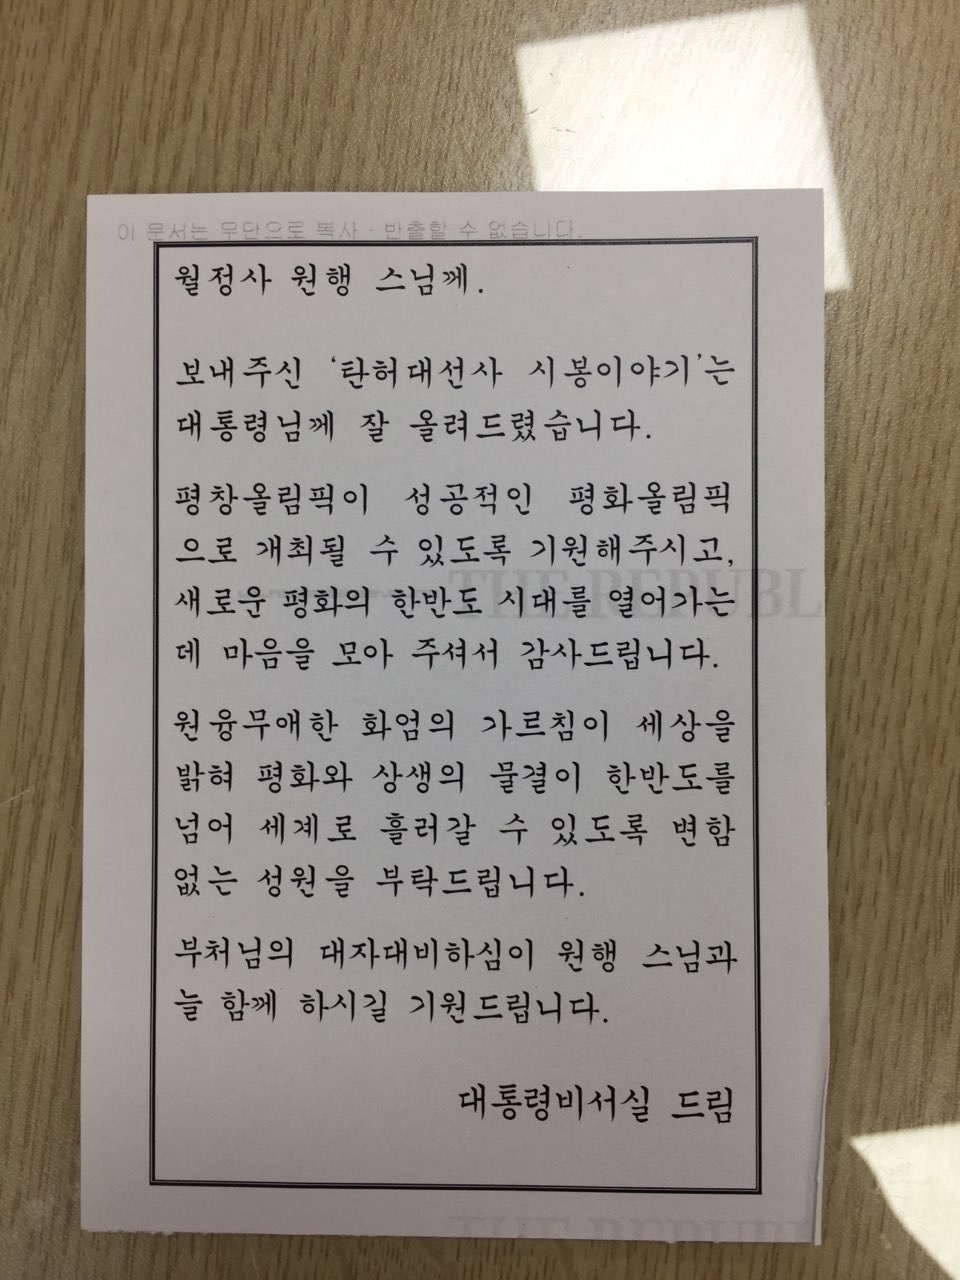 이 문서는 무단으로 복사·반출할 수 없습니다.
월정사 원행 스님께.
보내주신 '탄허대선사 시봉이야기'는
대통령님께 잘 올려드렸습니다.
평창올림픽이 성공적인 평화올림픽
으로 개최될 수 있도록 기원해주시고,
새로운 평화의 한반도 시대를 열어가는
데 마음을 모아 주셔서 감사드립니다.
원융무애한 화엄의 가르침이 세상을
밝혀 평화와 상생의 물결이 한반도를
넘어 세계로 흘러갈 수 있도록 변함
없는 성원을 부탁드립니다.
부처님의 대자대비하심이 원행 스님과
늘 함께 하시길 기원드립니다.
대통령비서실 드림
THE REPUBL
THE REPUBL